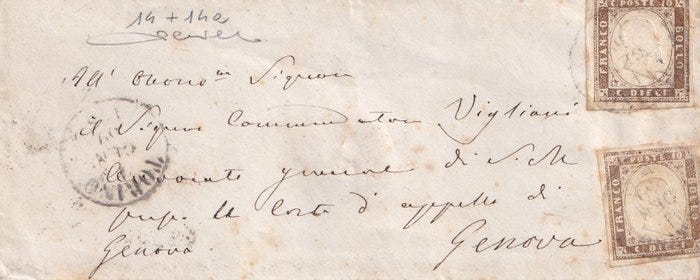 14 + 14a
All' Onor.mo Signor
il Signor Commendatore Vigliani
Avvocato generale di S. M.
presso la Corte d'appello di
Genova. Genova
TORINO
FRANCO C. POSTE 10 BOLLO C. DIECI
FRANCO C. POSTE 10 BOLLO C. DIECI